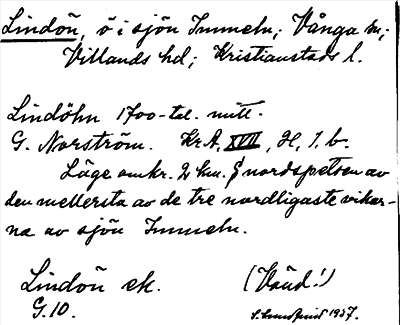 Lindön, ö i sjön Immeln; Vånga sn;
Villands hd; Kristianstads l.
Lindöhn 1700-tal. mitt.
G. Norström. Kr.A, XVII, H, 1, b.
Läge omkr. 2 km. S nordspetsen av
den mellersta av de tre nordligaste vikar-
na av sjön Immeln.
Lindön ek. (Vänd!)
G. 10. 1937.